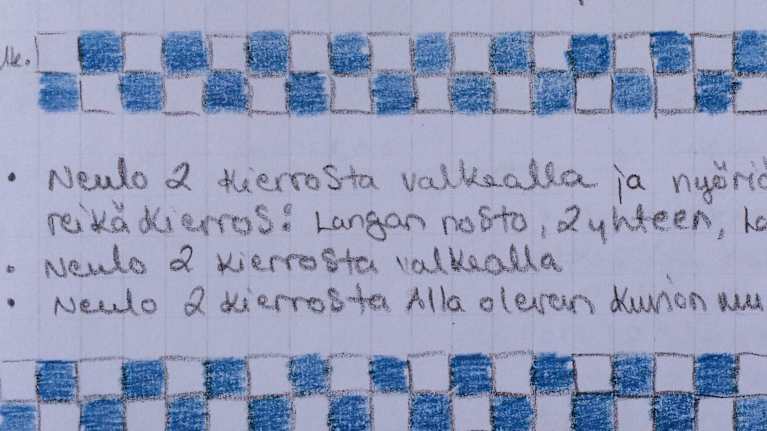 lk.
• Neulo 2 kierrosta valkealla ja nyöriö
reikäkierros: Langan nosto, 2 yhteen, La
• Neulo 2 kierrosta valkealla
• Neulo 2 kierrosta Alla olevan Kuvion mu